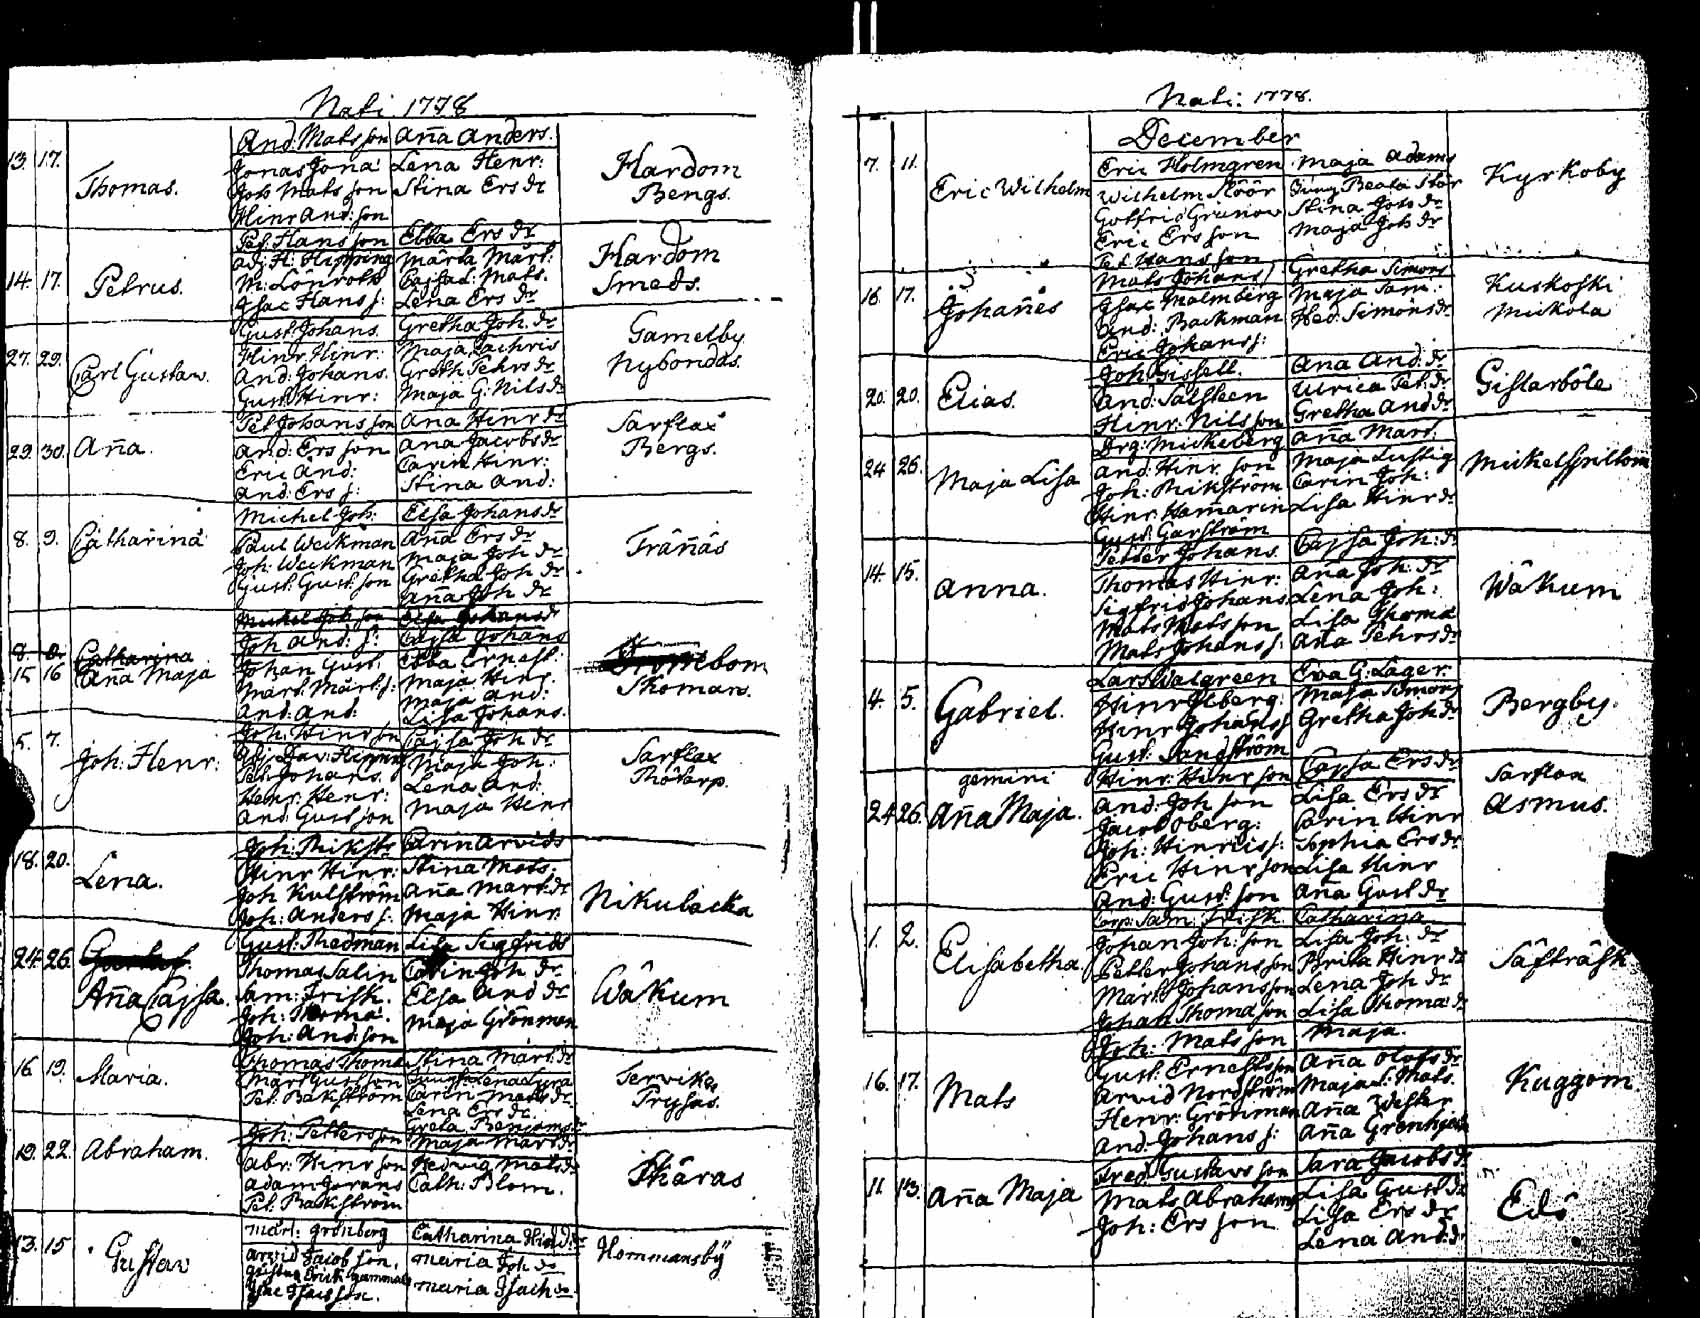 Nati 1778
And: Matsson Aña Anders.
13. 17. Thomas. Jonas Jona: Lena Henr: Hardom
Joh. Matsson Stina Ers dr Bengs.
Hinr And: son
Pet. Hansson Ebba Ers dr
Adj: H. Hipping Märta Märt: Hardom
14. 17. Petrus. M. Lönroth Cajsa d: Mats. Smeds.
Isac Hans s: Lena Ers dr
Gust. Johans. Gretha Joh. dr Gamelby
27. 29. Carl Gustav. Hinr. Hinr: Maja Zachris Nybondas.
And: Johans. Greth Pehrs dr
Gust. Hinr: Maja G. Nils dr
Pet Johansson Ana Hinr dr Sarflax
29. 30. Aña. And: Ersson Ana Jacobs dr Bergs.
Eric And: Carin Hinr:
And: Ers s: Stina And:
Michel Joh: Elsa Johans dr
8. 9. Catharina Paul Weckman Ana Ers dr Tränäs
Joh: Weckman Maja Joh dr
Gust: Gust: son Gretha Joh dr
Aña Joh dr
Michel Joh son Elsa Johans dr
Joh And: s: Cajsa Johans
8. 9. Catharina
15 16 Aña Maja Johan Gust: Ebba Ernest:
Märt: Märt s: Maja Hinr Skomars.
And: And: Maja And:
Lisa Johans.
Joh: Hinr son Cajsa Joh dr
5. 7. Joh: Henr: Adj: Dav: Hipping Maja Joh: Sarflax
Pet: Johans. Lena And:
Henr: Henr: Maja Henr
And Gust son
Carin Arvids
18. 20. Lena. Hinr Hinr: Stina Mats: Nikulbacka
Joh Kulström Aña Märt: dr
Joh: Anders s. Maja Hinr
Gust. Lisa Sigfrids
24 26 Aña Cajsa. Thomas Salin Carin Joh dr Wåkum
Sam: Frisk. Elsa And dr
Joh: Thoma: Maja Grönman
Joh: And: son
Thomas Thoma Stina Märt: dr
16 19. Maria. Märt Gust son Servika
Pet. Bäkström Carin Mats dr Prysas.
Lena Ers dr
Greta Benjams dr
Joh: Petterson Maja Märt dr
19. 22. Abraham. Abr: Hinr son Hedvig Mats dr Skäras
Adam Jorans Cath: Blom.
Pet. Backström
Märt: Grönberg Catharina Hind dr
13. 15 Gustav Arvid Jacobson. Maria Joh do Hommansbÿ
Isac Isacsson. Maria Isach do
Nati: 1778.
December
7. 11. Eric Wilhelm Eric Holmgren Maja Adams Kyrkoby
Wilhelm Stöör Beata Stör
Gotfrid Grünow Stina Joh dr
Eric Ersson Maja Joh dr
Pet Hansson
16. 17. Johañes Mats Johans Gretha Simons Kuskoski
Isac Malmberg Maja Sam: Mickola
And: Backman Hed: Simons dr
Eric Johans s:
20. 20. Elias. Joh Gissell. Ana And: dr Gislarböle
And: Salsteen Ulrica Pet: dr
Hinr: Nilsson Gretha And dr
Drg: Mickelberg Aña Märt:
24 26. Maja Lisa And: Hinr. son Maja Lustig Mickelspiltom
Joh: Rikström Carin Joh:
Hinr. Hamarin Lisa Hinr dr
Gust. Garström
Petter Johans. Cajsa Joh: dr
14. 15. Anna. Thomas Hinr: Aña Joh: dr Wåkum
Sigfrid Johans Lena Joh:
Mats Matsson Lisa Thoma
Mats Johans s: Aña Pehrs dr
Lars Walgreen Eva G: Lager.
4. 5. Gabriel. Hinr Öhberg: Maja Simons Bergby.
Hinr Johans s: Gretha Joh dr
Gust: Sandström
gemini Hinr: Hinr son Cajsa Ers dr Sarflax
24 26. Aña Maja. And: Joh son Lisa Ers dr Asmus.
Jacob Öberg: Carin Hinr
Joh: Hinric s: Sophia Ers dr
Eric Hinr son Lisa Hinr
And: Gust: son Aña Gust dr
Corp: Sam: Frisk Catharina
1. 2. Elisabetha. Johan Joh: son Lisa Joh: dr Säfträsk
Petter Johansson Brita Hinr dr
Märt Johansson Lena Joh dr
Johan Thomason Lisa Thoma dr
Joh: Matsson Maja.
16. 17. Mats Gust: Ernestson Aña Olofs dr Kuggom
Arvid Nordström Maja d: Mats.
Henr: Grönman Aña Wester
And: Johans s: Aña
Fred: Gustavsson Sara Jacobs dr
11. 13. Aña Maja Mats Abrahams Lisa Gust dr Edö
Joh: Ersson Lisa Ers dr
Lena And: dr